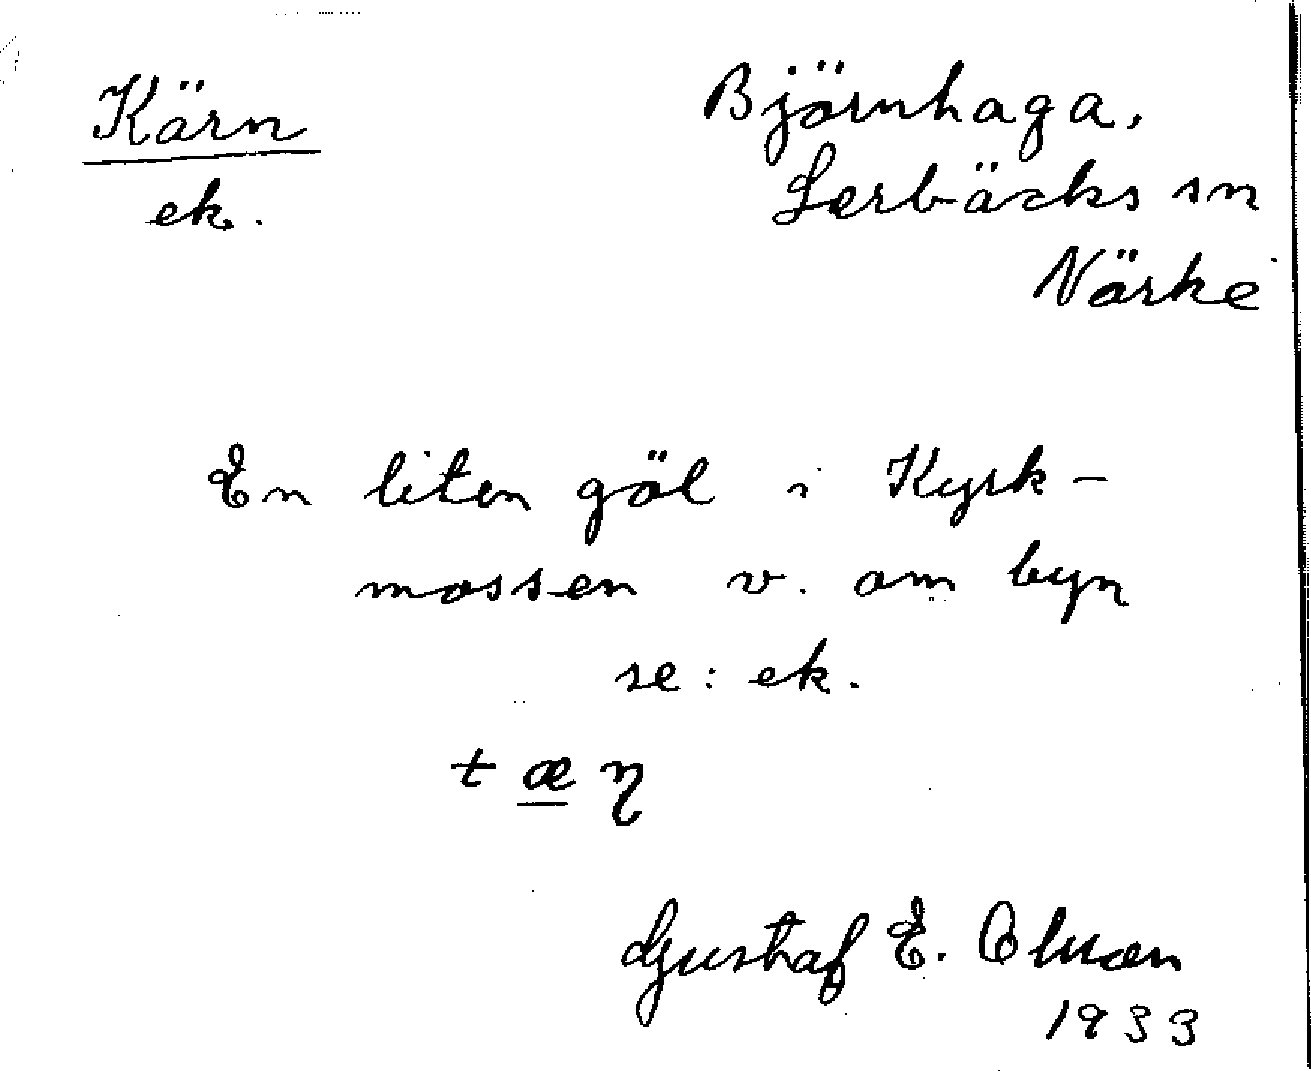 Kärn
ek.
Björnhaga,
Lerbäcks sn
Närke
En liten göl i Kyrk-
mossen v. om byn
se: ek.
tæɳ
Gustaf E. Olsson
1933